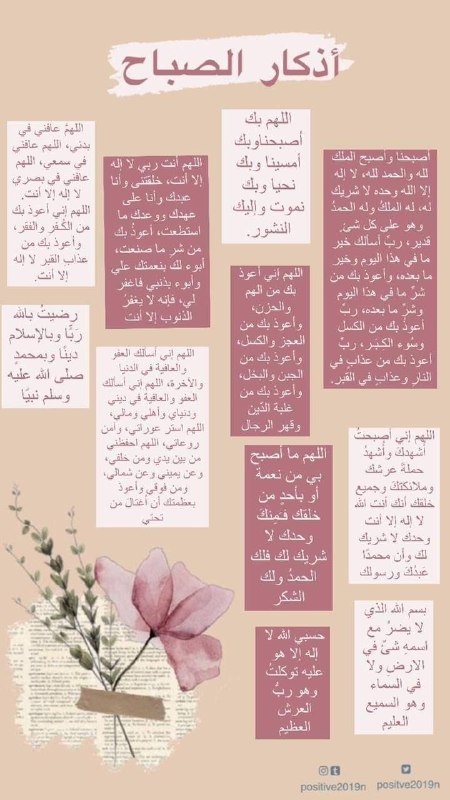 أذكار الصباح
أصبحنا وأصبح الملك
لله والحمد لله، لا إله
إلا الله وحده لا شريك
له، له الملكُ وله الحمدُ
وهو على كل شئ
قدير، ربّ أسألك خير
ما في هذا اليوم وخير
ما بعده، وأعوذ بك من
شرِّ ما في هذا اليوم
وشرِّ ما بعده، ربّ
أعوذُ بك من الكسل
وسُوء الكِبَر، ربّ
أعوذ بك من عذابٍ في
النار وعذابٍ في القبر.
اللهم بك
أصبحناوبك
أمسينا وبك
نحيا وبك
نموت وإليك
النشور.
اللهم أنت ربي لا إله
إلا أنت، خلقتنى وأنا
عبدك وأنا على
عهدك ووعدك ما
استطعت، أعوذُ بك
من شر ما صنعت،
أبوء لك بنعمتك علي
وأبوء بذنبي فاغفر
لي، فإنه لا يغفرُ
الذنوب إلا أنت
اللهمَّ عافني في
بدني، اللهم عافني
في سمعي، اللهم
عافني في بصري
لا إله إلا أنت.
اللهم إني أعوذ بك
من الكُفر والفقر،
وأعوذ بك من
عذاب القبر لا إله
إلا أنت.
اللهم إني أعوذ
بك من الهم
والحزن،
وأعوذ بك من
العجز والكسل،
وأعوذ بك من
الجبن والبخل،
وأعوذ بك من
غلبة الدّين
وقهر الرجال
رضيتُ بالله
ربًّا وبالإسلام
دينًا وبمحمدٍ
صلى الله عليه
وسلم نبيًا
اللهم إني أسألك العفو
والعافية في الدنيا
والآخرة، اللهم إني أسألك
العفو والعافية في ديني
ودنياي وأهلي ومالي،
اللهم استر عوراتي، وآمن
روعاتي، اللهم احفظني
من بين يدي ومن خلفي،
وعن يميني وعن شمالي،
ومن فوقي وأعوذ
بعظمتك أن أغتالَ من
تحتي
اللهم إني أصبحتُ
أشهدكَ وأشهدُ
حملةَ عرشك
وملائكتكَ وجميع
خلقك أنك أنت الله
لا إله إلا أنت
وحدك لا شريك
لك وأن محمدًا
عَبدُكَ ورسولك
اللهم ما أصبح
بي من نعمة
أو بأحدٍ من
خلقك فَمِنكَ
وحدك لا
شريك لك فلك
الحمدُ ولك
الشكر
بسم الله الذي
لا يضرُ مع
اسمه شئُ في
الارض ولا
في السماء
وهو السميع
العليم
حسبي الله لا
إله إلا هو
عليه توكلتُ
وهو ربُّ
العرش
العظيم
positive2019n
positve2019n